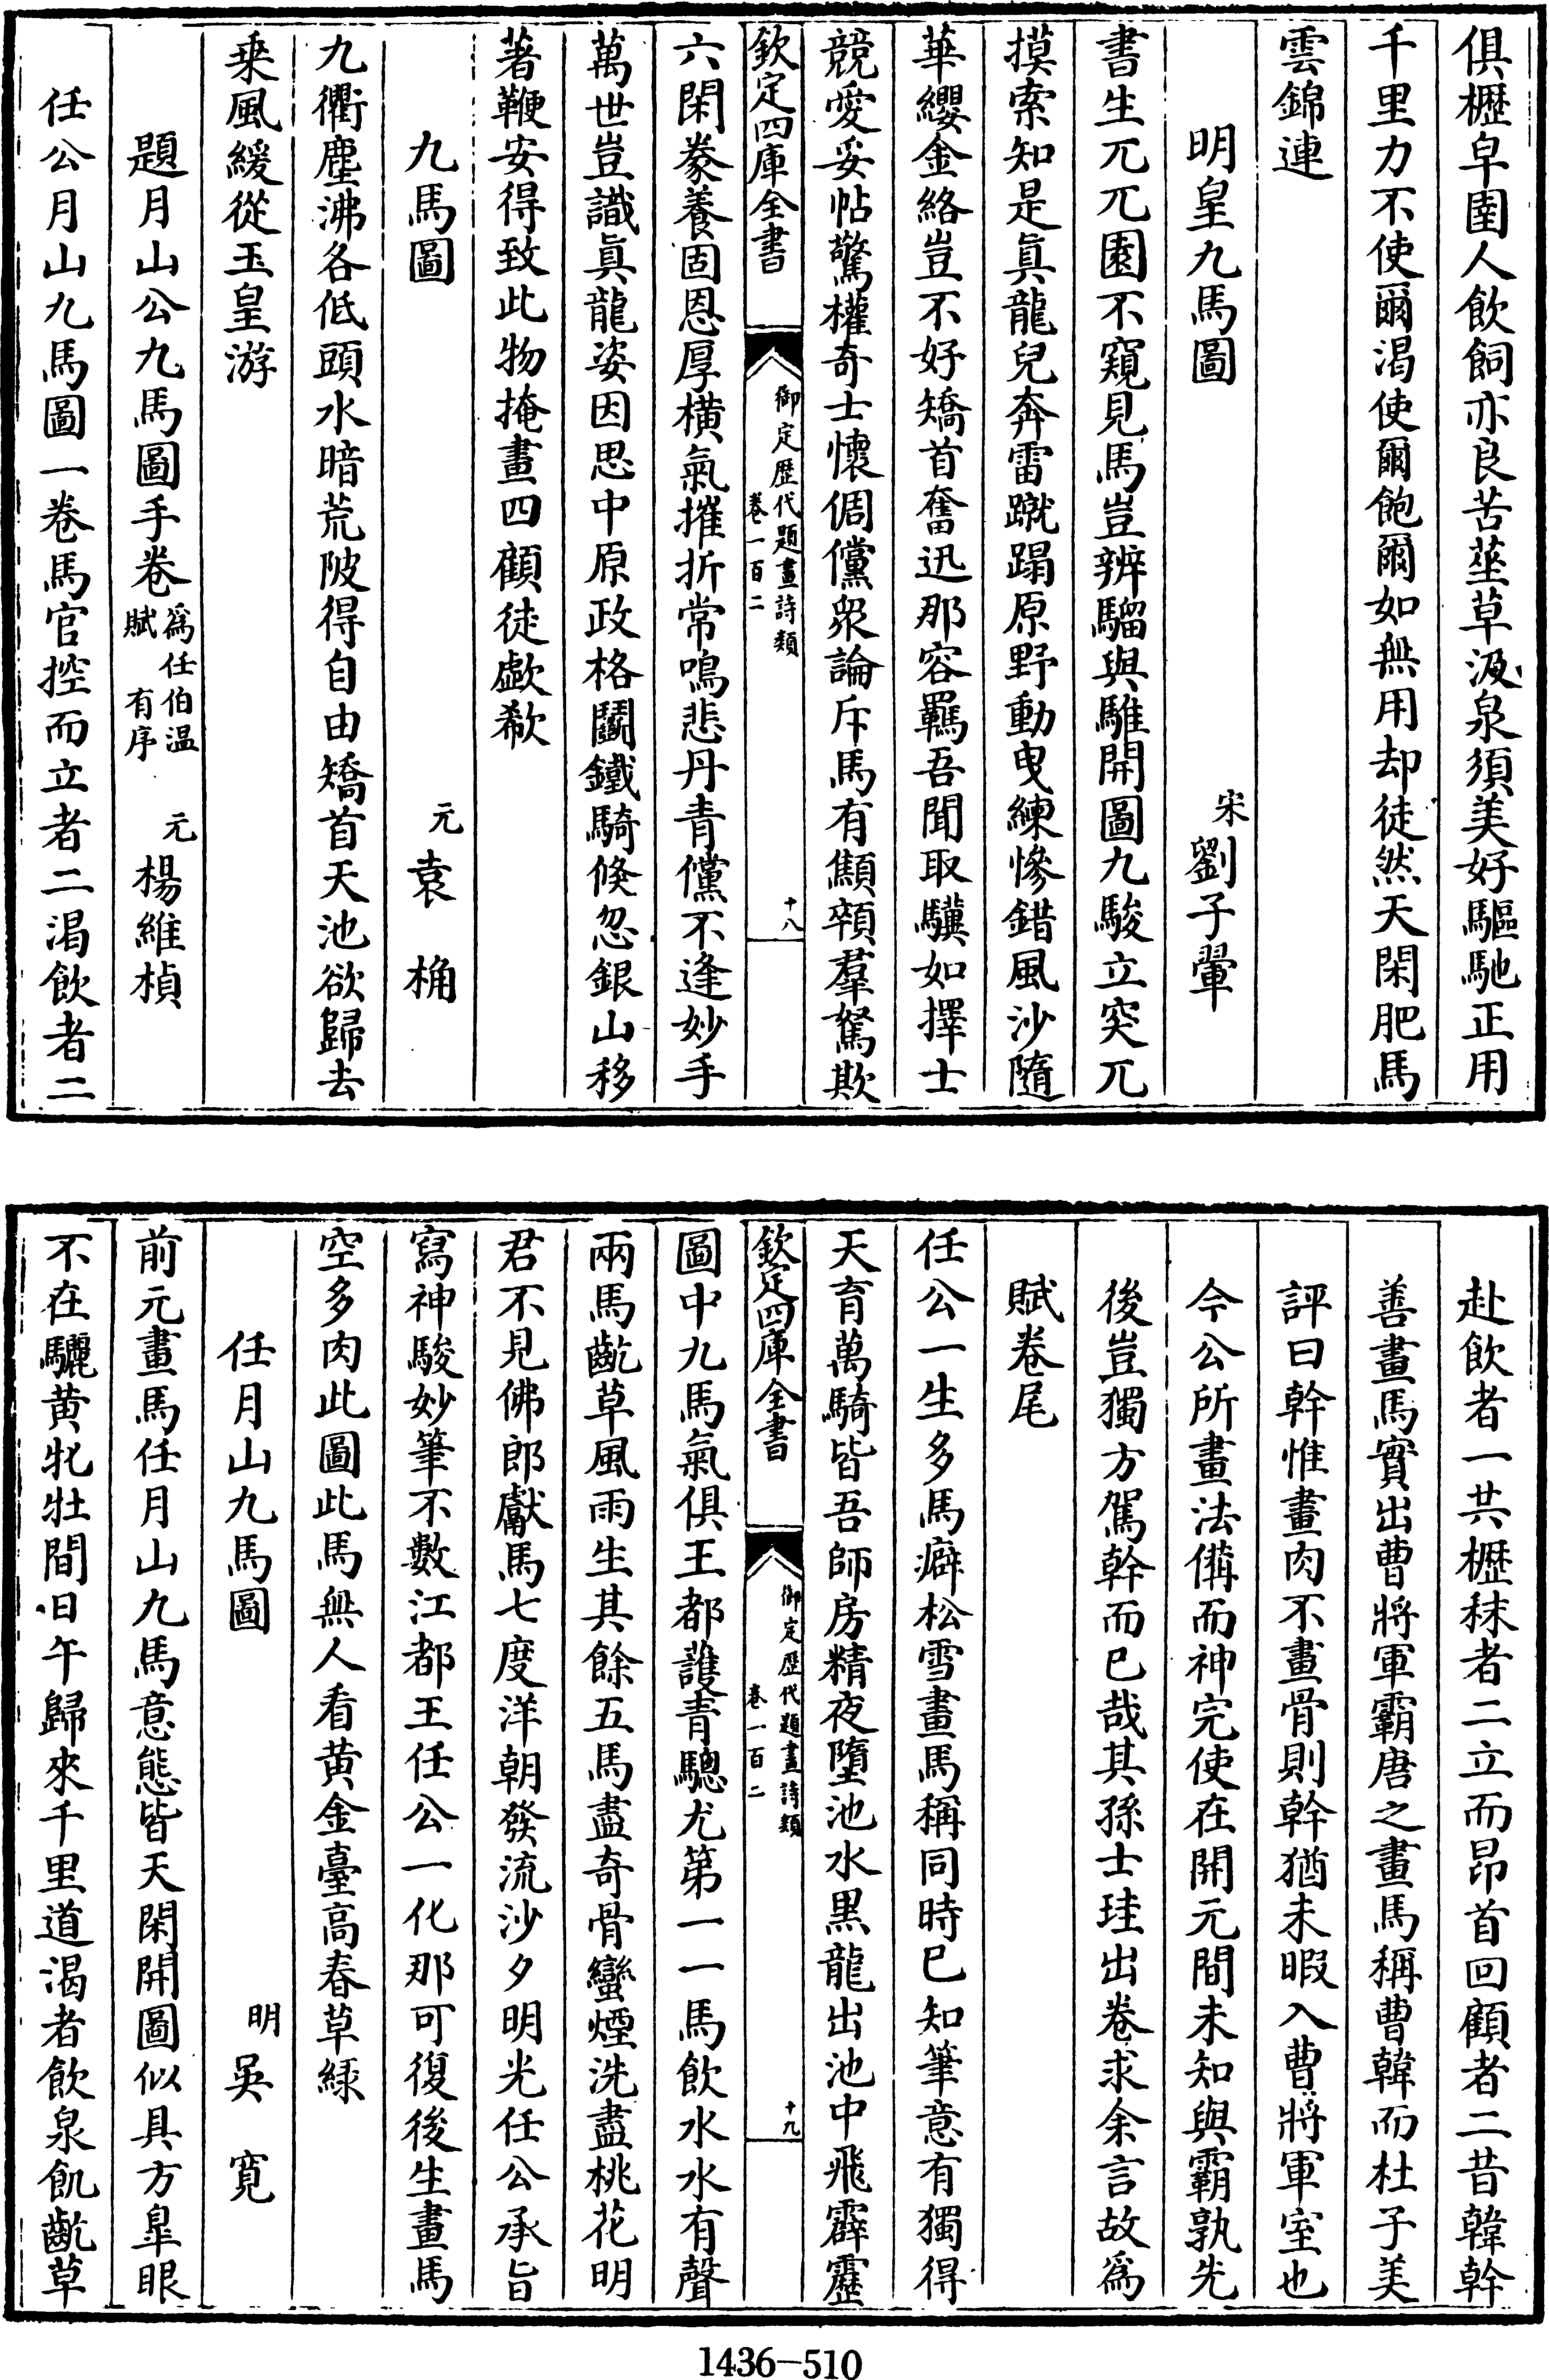 俱櫪皁圉人飲飼亦良苦莝草汲泉須美好驅馳正用
千里力不使爾渴使爾飽爾如無用却徒然天閑肥馬
雲錦連
明皇九馬圖
宋劉子翬
書生兀兀園不窺見馬豈辨騮與騅開圖九駿立突兀
摸索知是真龍兒奔雷蹴蹋原野動曳練慘錯風沙隨
華纓金絡豈不好矯首奮迅那容羈吾聞取驥如擇士
競愛妥帖驚權奇士懷倜儻衆論斥馬有顒顙羣駑欺
欽定四庫全書
御定歷代題畫詩類
卷一百二
十八
六閑豢養固恩厚橫氣摧折常鳴悲丹青儻不逢妙手
萬世豈識真龍姿因思中原政格鬭鐵騎倐忽銀山移
著鞭安得致此物掩畫四顧徒歔欷
九馬圖
元袁桷
九衢塵沸各低頭水暗荒陂得自由矯首天池欲歸去
乗風緩從玉皇游
題月山公九馬圖手卷為任伯温賦有序
元楊維楨
任公月山九馬圖一卷馬官控而立者二渴飲者二
赴飲者一共櫪秣者二立而昂首回顧者二昔韓幹
善畫馬實出曹將軍霸唐之畫馬稱曹韓而杜子美
評曰幹惟畫肉不畫骨則幹猶未暇入曹將軍室也
今公所畫法備而神完使在開元間未知與霸孰先
後豈獨方駕幹而已哉其孫士珪出卷求余言故為
賦卷尾
任公一生多馬癖松雪畫馬稱同時已知筆意有獨得
天育萬騎皆吾師房精夜墮池水黑龍出池中飛霹靂
欽定四庫全書
御定歷代題畫詩類
卷一百二
十九
圖中九馬氣俱王都護青驄尤第一一馬飲水水有聲
兩馬齕草風雨生其餘五馬盡奇骨蠻煙洗盡桃花明
君不見佛郎獻馬七度洋朝發流沙夕明光任公承旨
寫神駿妙筆不數江都王任公一化那可復後生畫馬
空多肉此圖此馬無人看黃金臺高春草緑
任月山九馬圖
明吳寬
前元畫馬任月山九馬意態皆天閑開圖似具方臯眼
不在驪黃牝牡間日午歸來千里道渴者飲泉飢齕草
1436-510